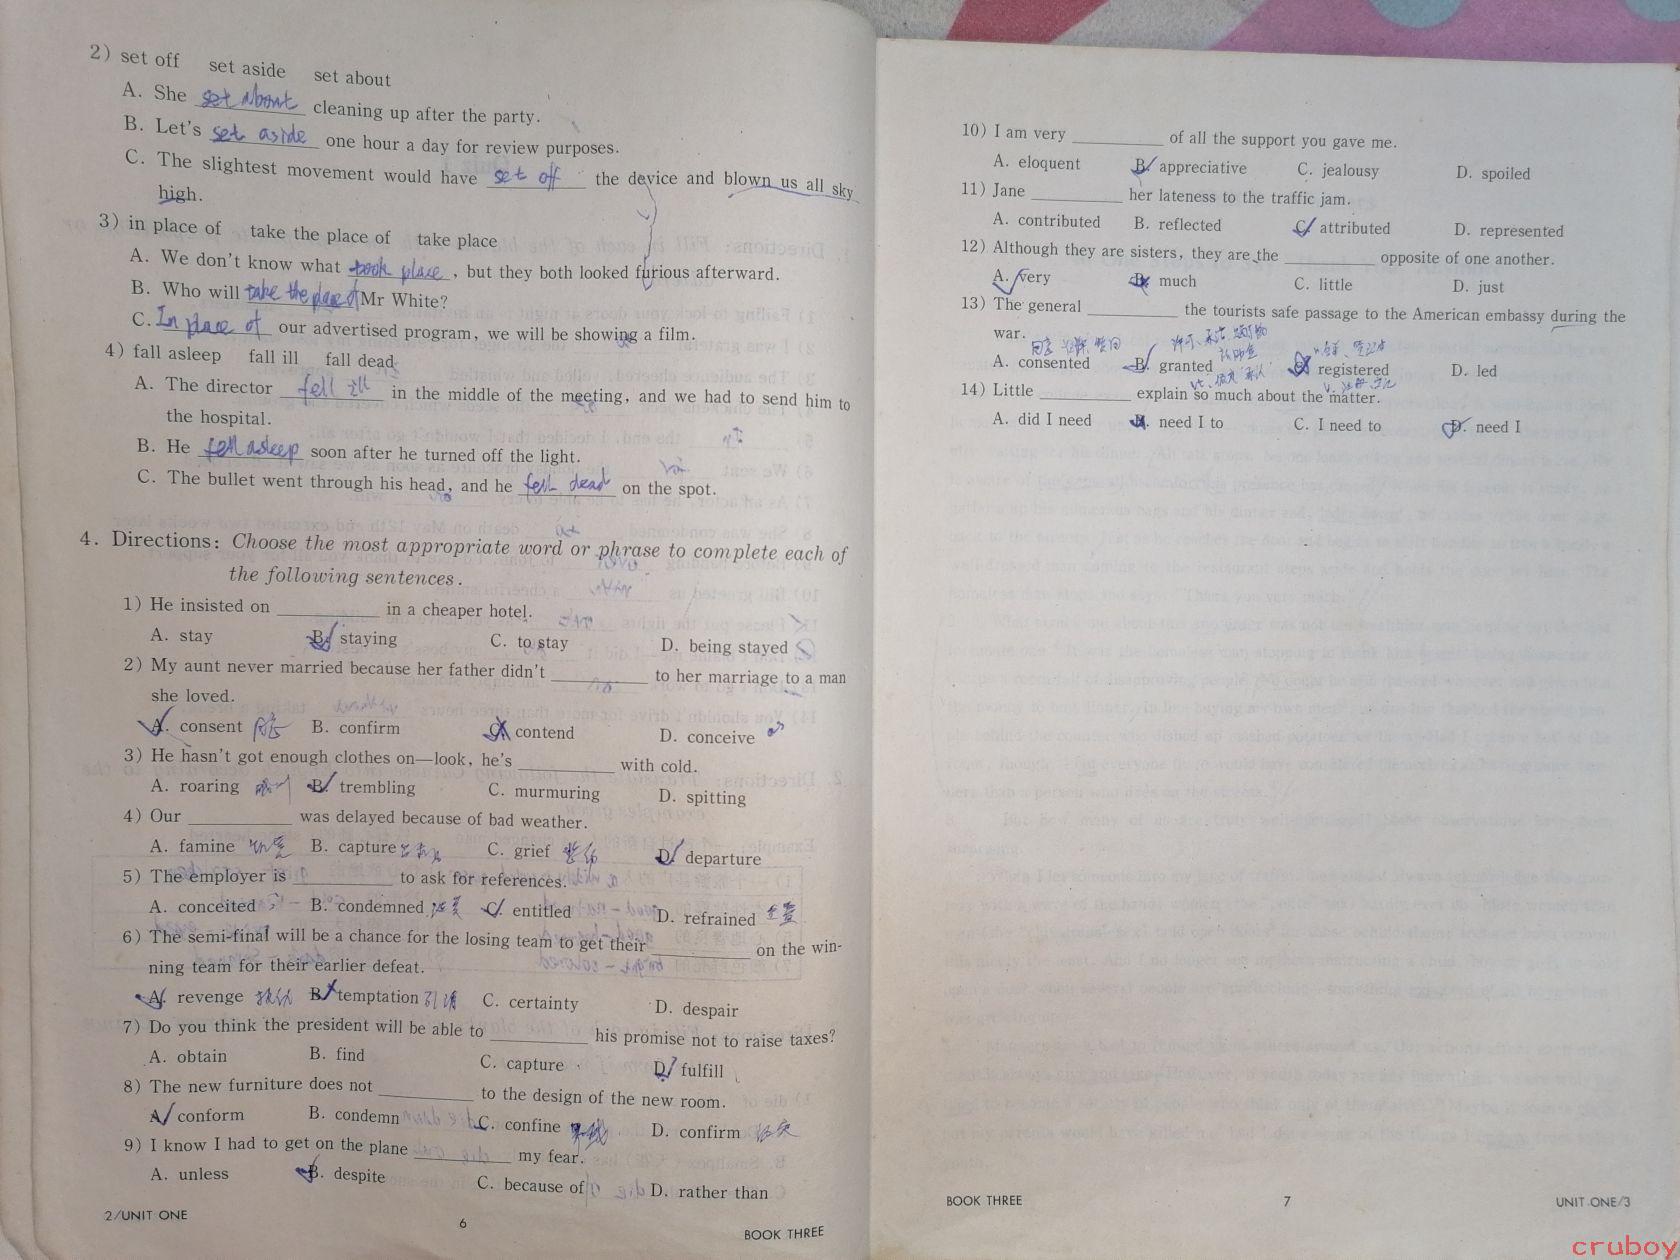 2) set off set aside set about
A. She set about cleaning up after the party.
B. Let's set aside one hour a day for review purposes.
C. The slightest movement would have set off the device and blown us all sky
high.
3) in place of take the place of take place
A. We don't know what took place, but they both looked furious afterward.
B. Who will take the place of Mr White?
C. In place of our advertised program, we will be showing a film.
4) fall asleep fall ill fall dead
A. The director fell ill in the middle of the meeting, and we had to send him to
the hospital.
B. He fell asleep soon after he turned off the light.
C. The bullet went through his head, and he fell dead on the spot.
4. Directions: Choose the most appropriate word or phrase to complete each of
the following sentences.
1) He insisted on ____ in a cheaper hotel.
A. stay B. staying C. to stay D. being stayed
2) My aunt never married because her father didn't ____ to her marriage to a man
she loved.
A. consent 同意 B. confirm C. contend D. conceive
3) He hasn't got enough clothes on—look, he's ____ with cold.
A. roaring B. trembling C. murmuring D. spitting
4) Our ____ was delayed because of bad weather.
A. famine B. capture C. grief D. departure
5) The employer is ____ to ask for references.
A. conceited B. condemned C. entitled D. refrained
6) The semi-final will be a chance for the losing team to get their ____ on the win-
ning team for their earlier defeat.
A. revenge B. temptation C. certainty D. despair
7) Do you think the president will be able to ____ his promise not to raise taxes?
A. obtain B. find C. capture D. fulfill
8) The new furniture does not ____ to the design of the new room.
A. conform B. condemn C. confine D. confirm
9) I know I had to get on the plane ____ my fear.
A. unless B. despite C. because of D. rather than
2/UNIT ONE 6 BOOK THREE
10) I am very ____ of all the support you gave me.
A. eloquent B. appreciative C. jealousy D. spoiled
11) Jane ____ her lateness to the traffic jam.
A. contributed B. reflected C. attributed D. represented
12) Although they are sisters, they are the ____ opposite of one another.
A. very B. much C. little D. just
13) The general ____ the tourists safe passage to the American embassy during the
war.
A. consented B. granted C. registered D. led
14) Little ____ explain so much about the matter.
A. did I need B. need I to C. I need to D. need I
BOOK THREE 7 UNIT ONE/3
cruboy